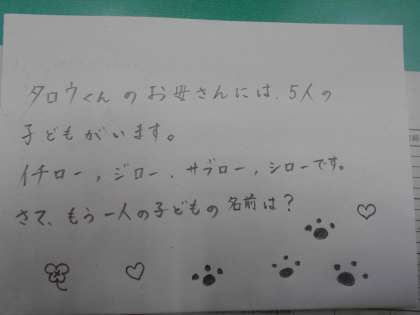 タロウくんのお母さんには、5人の
子どもがいます。
イチロー，ジロー、サブロー，シローです。
さて、もう一人の子どもの名前は？